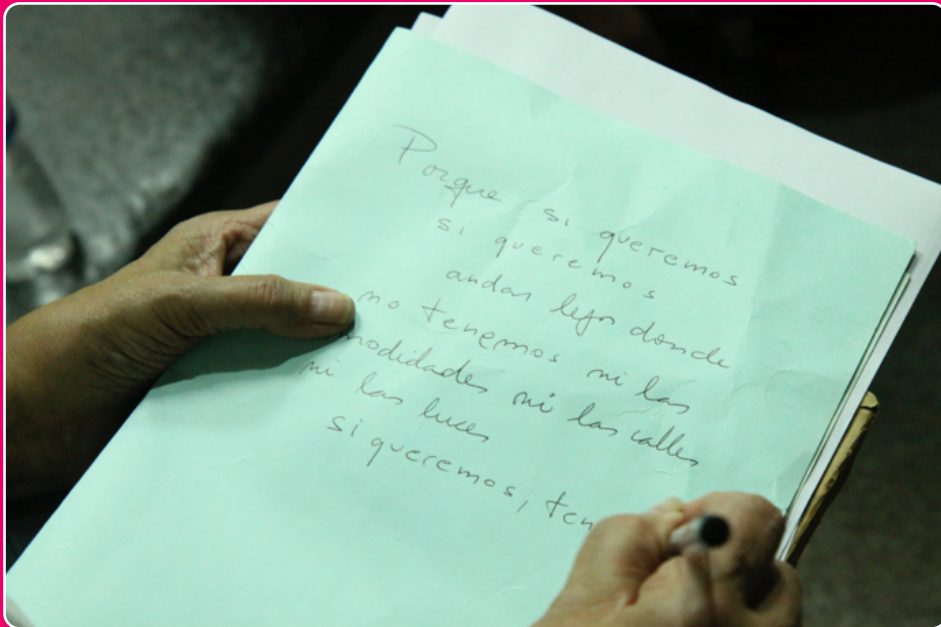 Porque si queremos
si queremos
andar lejos donde
no tenemos ni las
modidades ni las calles
ni las luces
si queremos, ten